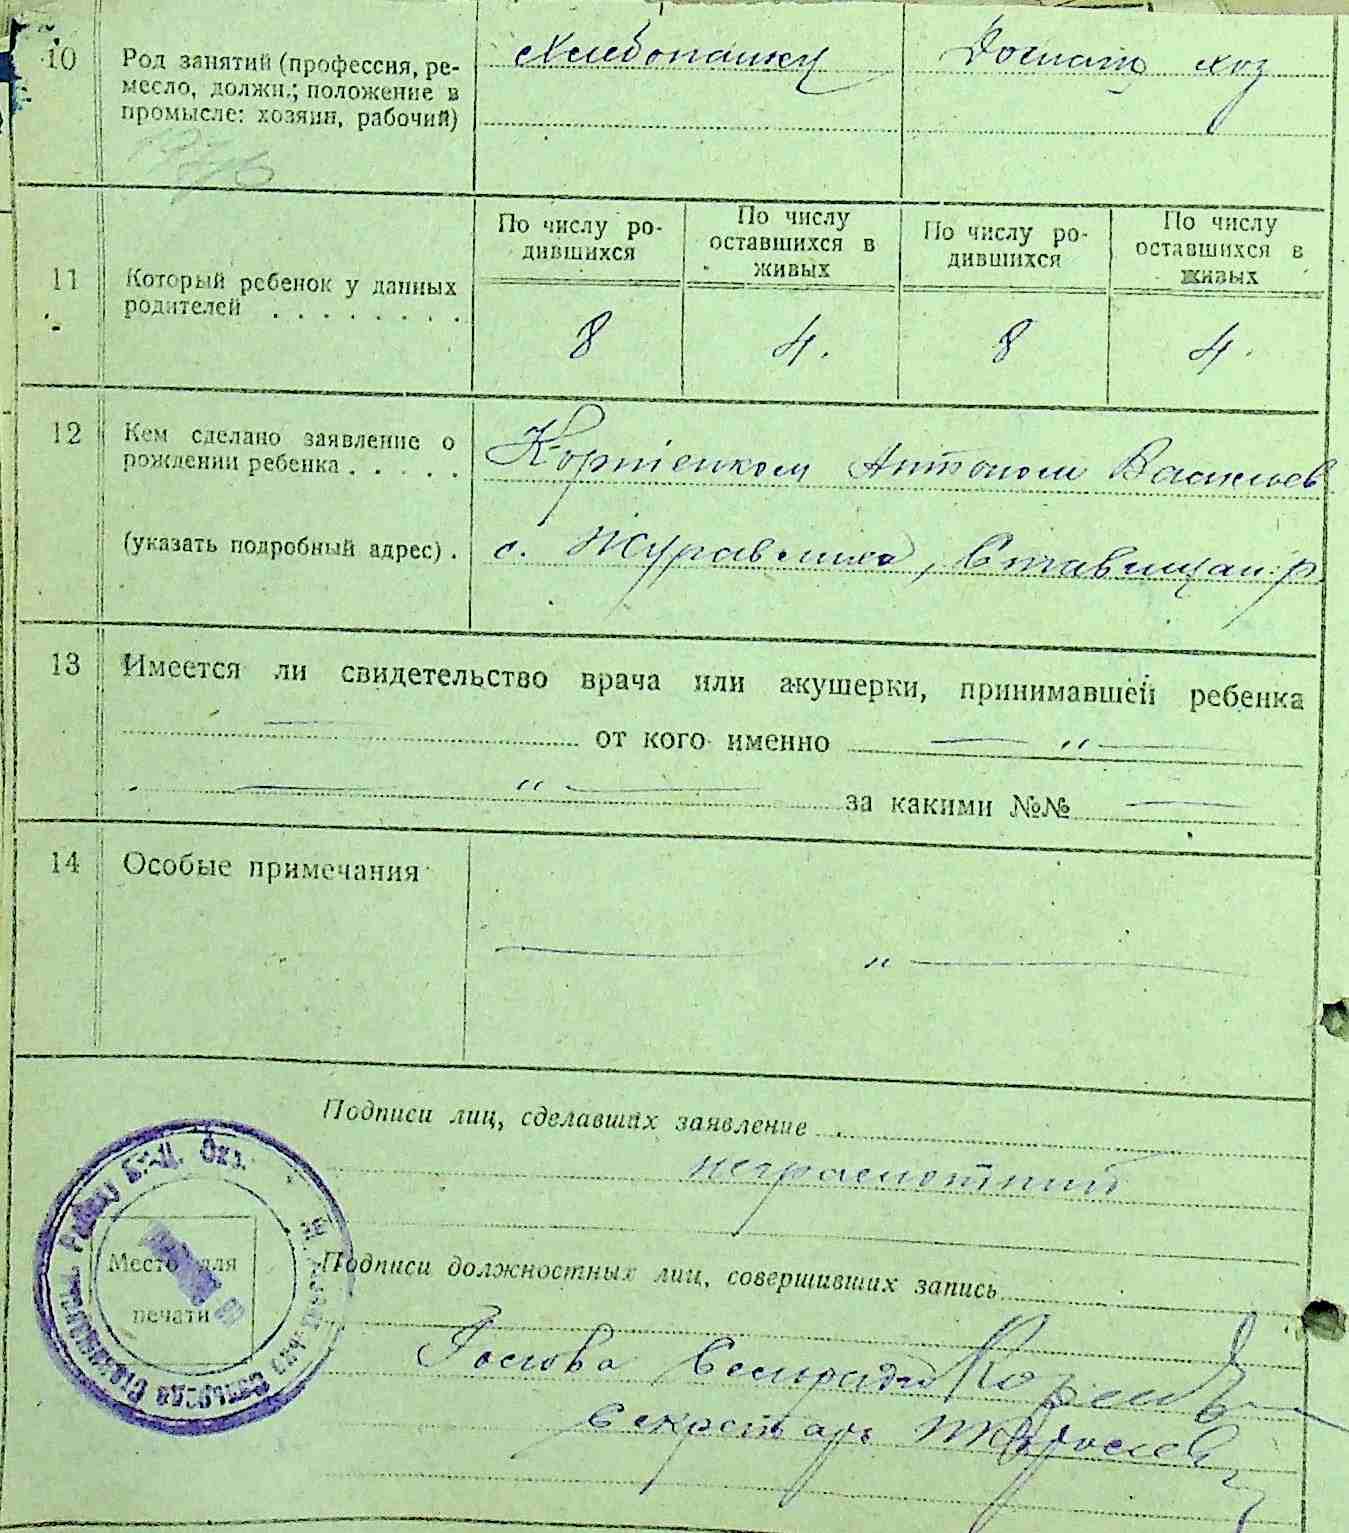 10 Род занятий (профессия, ре-
месло, должн.; положение в
промысле: хозяин, рабочий)
Хлебопашец
Домаш хоз
11 Который ребенок у данных
родителей . . . . . . . .
По числу ро-
дившихся
По числу
оставшихся в
живых
По числу ро-
дившихся
По числу
оставшихся в
живых
8 4. 8 4.
12 Кем сделано заявление о
рождении ребенка . . . . .
(указать подробный адрес) .
Антоном Васильев
с. Журавлиха, Ставищан. р
13 Имеется ли свидетельство врача или акушерки, принимавшей ребенка
— от кого именно — „ —
— „ — за какими №№ —
14 Особые примечания
— „ —
Подписи лиц, сделавших заявление
неграмотний
Место для
печати
Подписи должностных лиц, совершивших запись
Голова Сельради
Секретарь